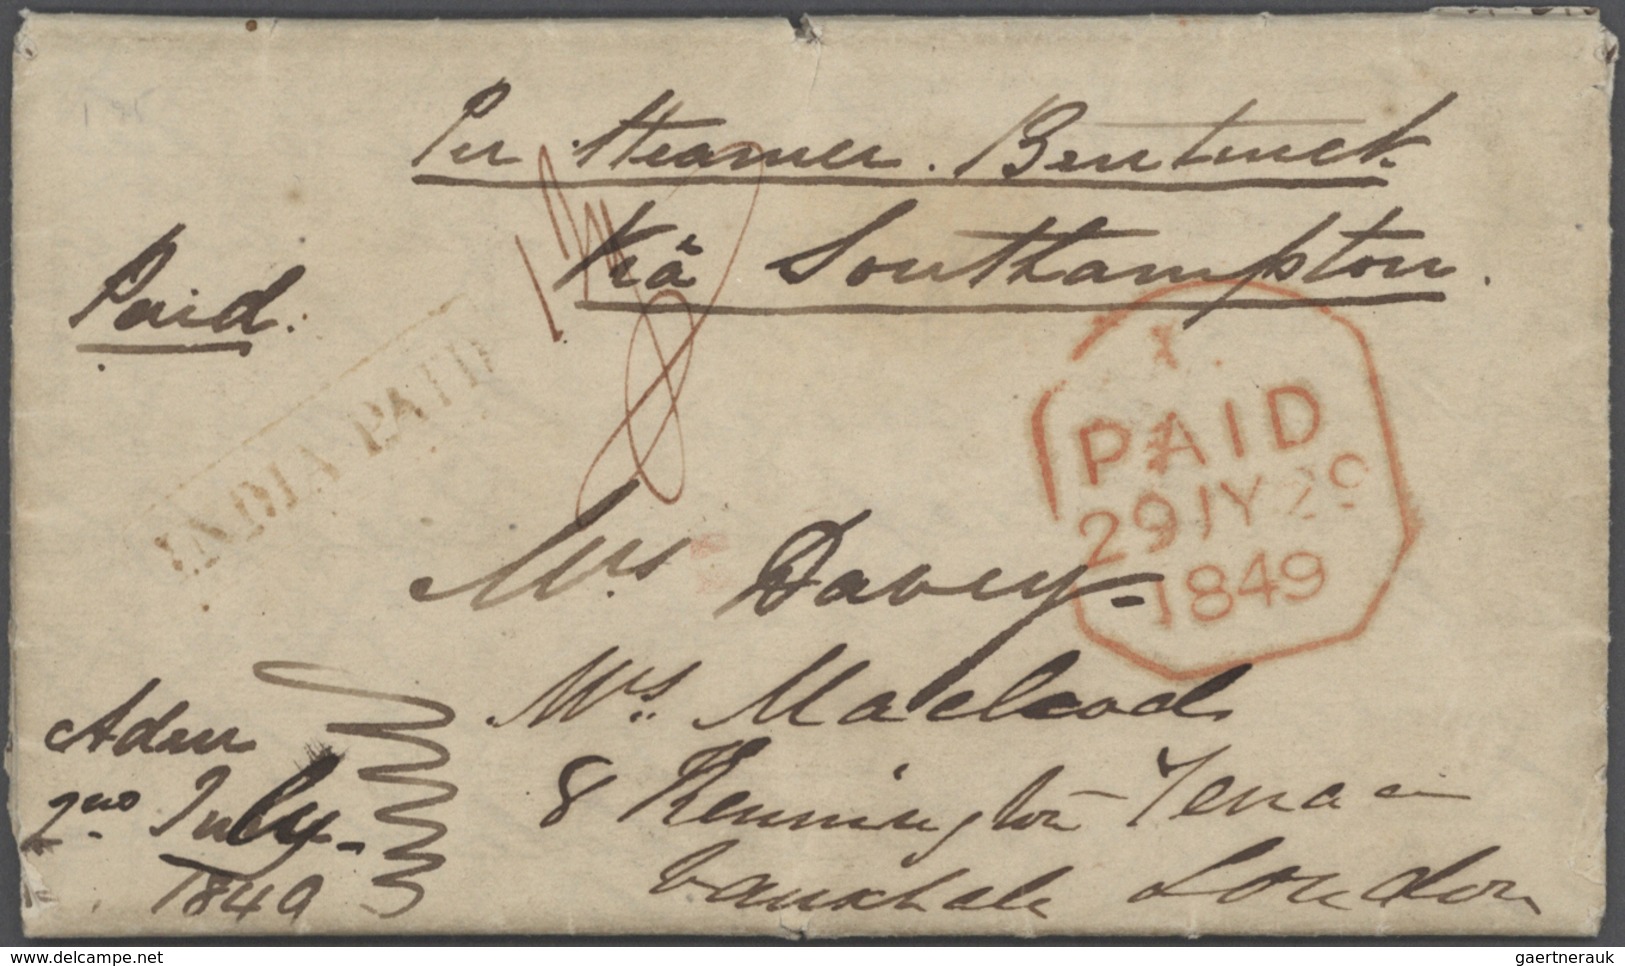 Per Steamer. Bentinck
Viâ Southampton.
Paid.
INDIA PAID
PAID
29 JY 29
1849
Mrs Davey-
Mrs Macleod
8 Kennington Terrace
Vauxhall London
Aden
2nd July-
1849
www.delcampe.net
gaertnerauk